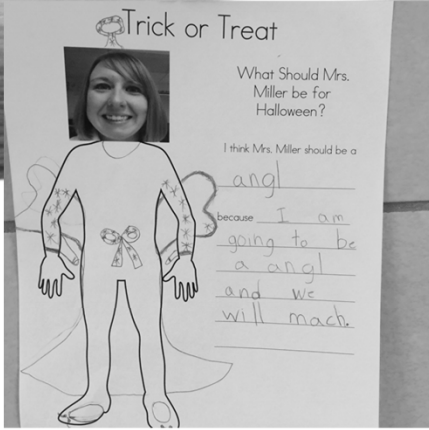 Trick or Treat
What Should Mrs.
Miller be for
Halloween?
I think Mrs. Miller should be a
angl
because I am
going to be
a angl
and we
will mach.